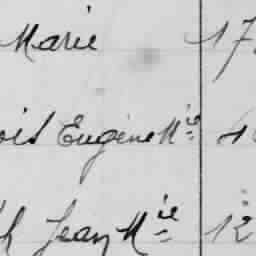 Marie 17
ois Eugène Mie
h Jean Mie 12